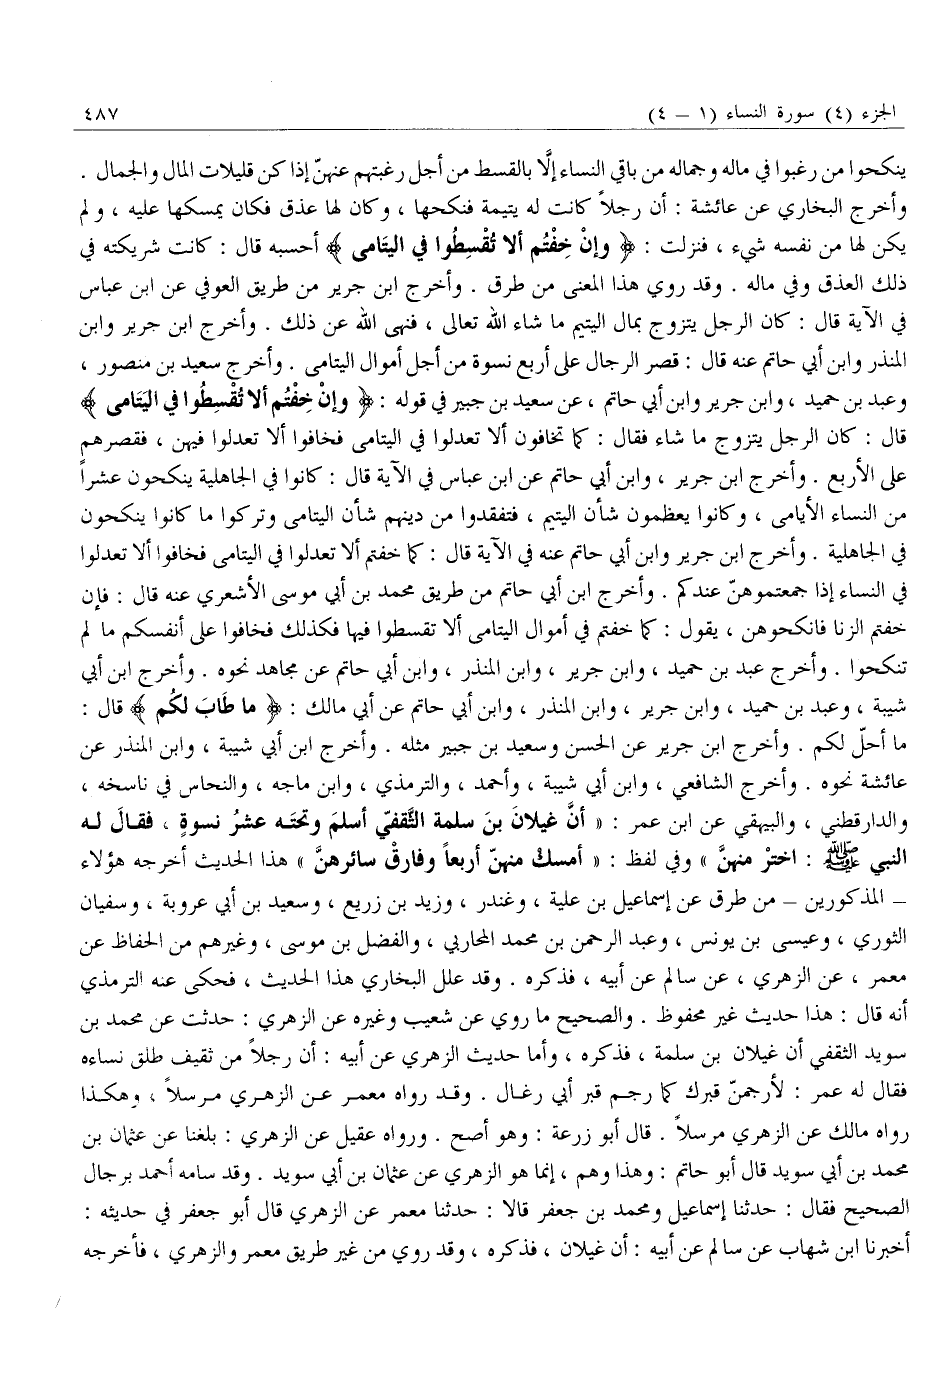 الجزء (٤) سورة النساء (١ – ٤) ٤٨٧
ينكحوا من رغبوا في ماله وجماله من باقي النساء إلَّا بالقسط من أجل رغبتهم عنهنّ إذا كن قليلات المال والجمال .
وأخرج البخاري عن عائشة : أن رجلاً كانت له يتيمة فنكحها ، وكان لها عذق فكان يمسكها عليه ، ولم
يكن لها من نفسه شيء ، فنزلت : ﴿ وإنْ خِفْتُم ألا تُقْسِطُوا في اليتَامى ﴾ أحسبه قال : كانت شريكته في
ذلك العذق وفي ماله . وقد روي هذا المعنى من طرق . وأخرج ابن جرير من طريق العوفي عن ابن عباس
في الآية قال : كان الرجل يتزوج بمال اليتيم ما شاء الله تعالى ، فنهى الله عن ذلك . وأخرج ابن جرير وابن
المنذر وابن أبي حاتم عنه قال : قصر الرجال على أربع نسوة من أجل أموال اليتامى . وأخرج سعيد بن منصور ،
وعبد بن حميد ، وابن جرير وابن أبي حاتم ، عن سعيد بن جبير في قوله : ﴿ وإنْ خِفْتُم ألا تُقْسِطُوا في اليَتَامى ﴾
قال : كان الرجل يتزوج ما شاء فقال : كما تخافون ألا تعدلوا في اليتامى فخافوا ألا تعدلوا فيهن ، فقصرهم
على الأربع . وأخرج ابن جرير ، وابن أبي حاتم عن ابن عباس في الآية قال : كانوا في الجاهلية ينكحون عشراً
من النساء الأيامى ، وكانوا يعظمون شأن اليتيم ، فتفقدوا من دينهم شأن اليتامى وتركوا ما كانوا ينكحون
في الجاهلية . وأخرج ابن جرير وابن أبي حاتم عنه في الآية قال : كما خفتم ألا تعدلوا في اليتامى فخافوا ألا تعدلوا
في النساء إذا جمعتموهنّ عندكم . وأخرج ابن أبي حاتم من طريق محمد بن أبي موسى الأشعري عنه قال : فإن
خفتم الزنا فانكحوهن ، يقول : كما خفتم في أموال اليتامى ألا تقسطوا فيها فكذلك فخافوا على أنفسكم ما لم
تنكحوا . وأخرج عبد بن حميد ، وابن جرير ، وابن المنذر ، وابن أبي حاتم عن مجاهد نحوه . وأخرج ابن أبي
شيبة ، وعبد بن حميد ، وابن جرير ، وابن المنذر ، وابن أبي حاتم عن أبي مالك : ﴿ ما طَابَ لكُم ﴾ قال :
ما أحلّ لكم . وأخرج ابن جرير عن الحسن وسعيد بن جبير مثله . وأخرج ابن أبي شيبة ، وابن المنذر عن
عائشة نحوه . وأخرج الشافعي ، وابن أبي شيبة ، وأحمد ، والترمذي ، وابن ماجه ، والنحاس في ناسخه ،
والدارقطني ، والبيهقي عن ابن عمر : « أنَّ غيلانَ بنَ سلمة الثَّقفيّ أسلمَ وتحتَـه عشرُ نسوةٍ ، فقـالَ لـه
النبي ﷺ : اخترْ منهنَّ » وفي لفظ : « أمسكْ منهنّ أربعاً وفارقْ سائرهنَّ » هذا الحديث أخرجه هؤلاء
– المذكورين – من طرق عن إسماعيل بن علية ، وغندر ، وزيد بن زريع ، وسعيد بن أبي عروبة ، وسفيان
الثوري ، وعيسى بن يونس ، وعبد الرحمن بن محمد المحاربي ، والفضل بن موسى ، وغيرهم من الحفاظ عن
معمر ، عن الزهري ، عن سالم عن أبيه ، فذكره . وقد علل البخاري هذا الحديث ، فحكى عنه الترمذي
أنه قال : هذا حديث غير محفوظ . والصحيح ما روي عن شعيب وغيره عن الزهري : حدثت عن محمد بن
سويد الثقفي أن غيلان بن سلمة ، فذكره ، وأما حديث الزهري عن أبيه : أن رجلاً من ثقيف طلق نساءه
فقال له عمر : لأرجمنّ قبرك كما رجم قبر أبي رغـال . وقـد رواه معمـر عـن الزهـري مـرسلاً ، وهكـذا
رواه مالك عن الزهري مرسلاً . قال أبو زرعة : وهو أصح . ورواه عقيل عن الزهري : بلغنا عن عثمان بن
محمد بن أبي سويد قال أبو حاتم : وهذا وهم ، إنما هو الزهري عن عثمان بن أبي سويد . وقد سامه أحمد برجال
الصحيح فقال : حدثنا إسماعيل ومحمد بن جعفر قالا : حدثنا معمر عن الزهري قال أبو جعفر في حديثه :
أخبرنا ابن شهاب عن سالم عن أبيه : أن غيلان ، فذكره ، وقد روي من غير طريق معمر والزهري ، فأخرجه